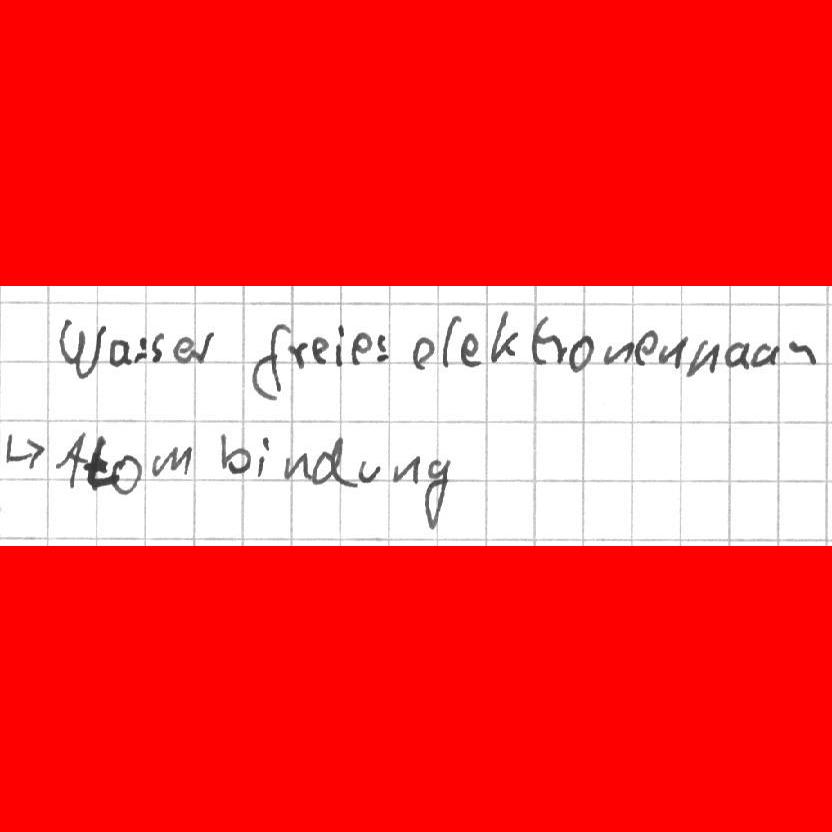 Wasser freies elektronenpaar
↳ Atom bindung